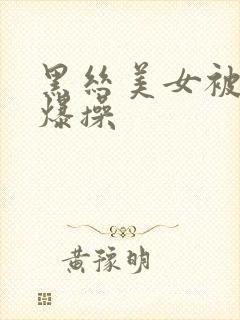 黑丝美女被
爆操
黄豫明